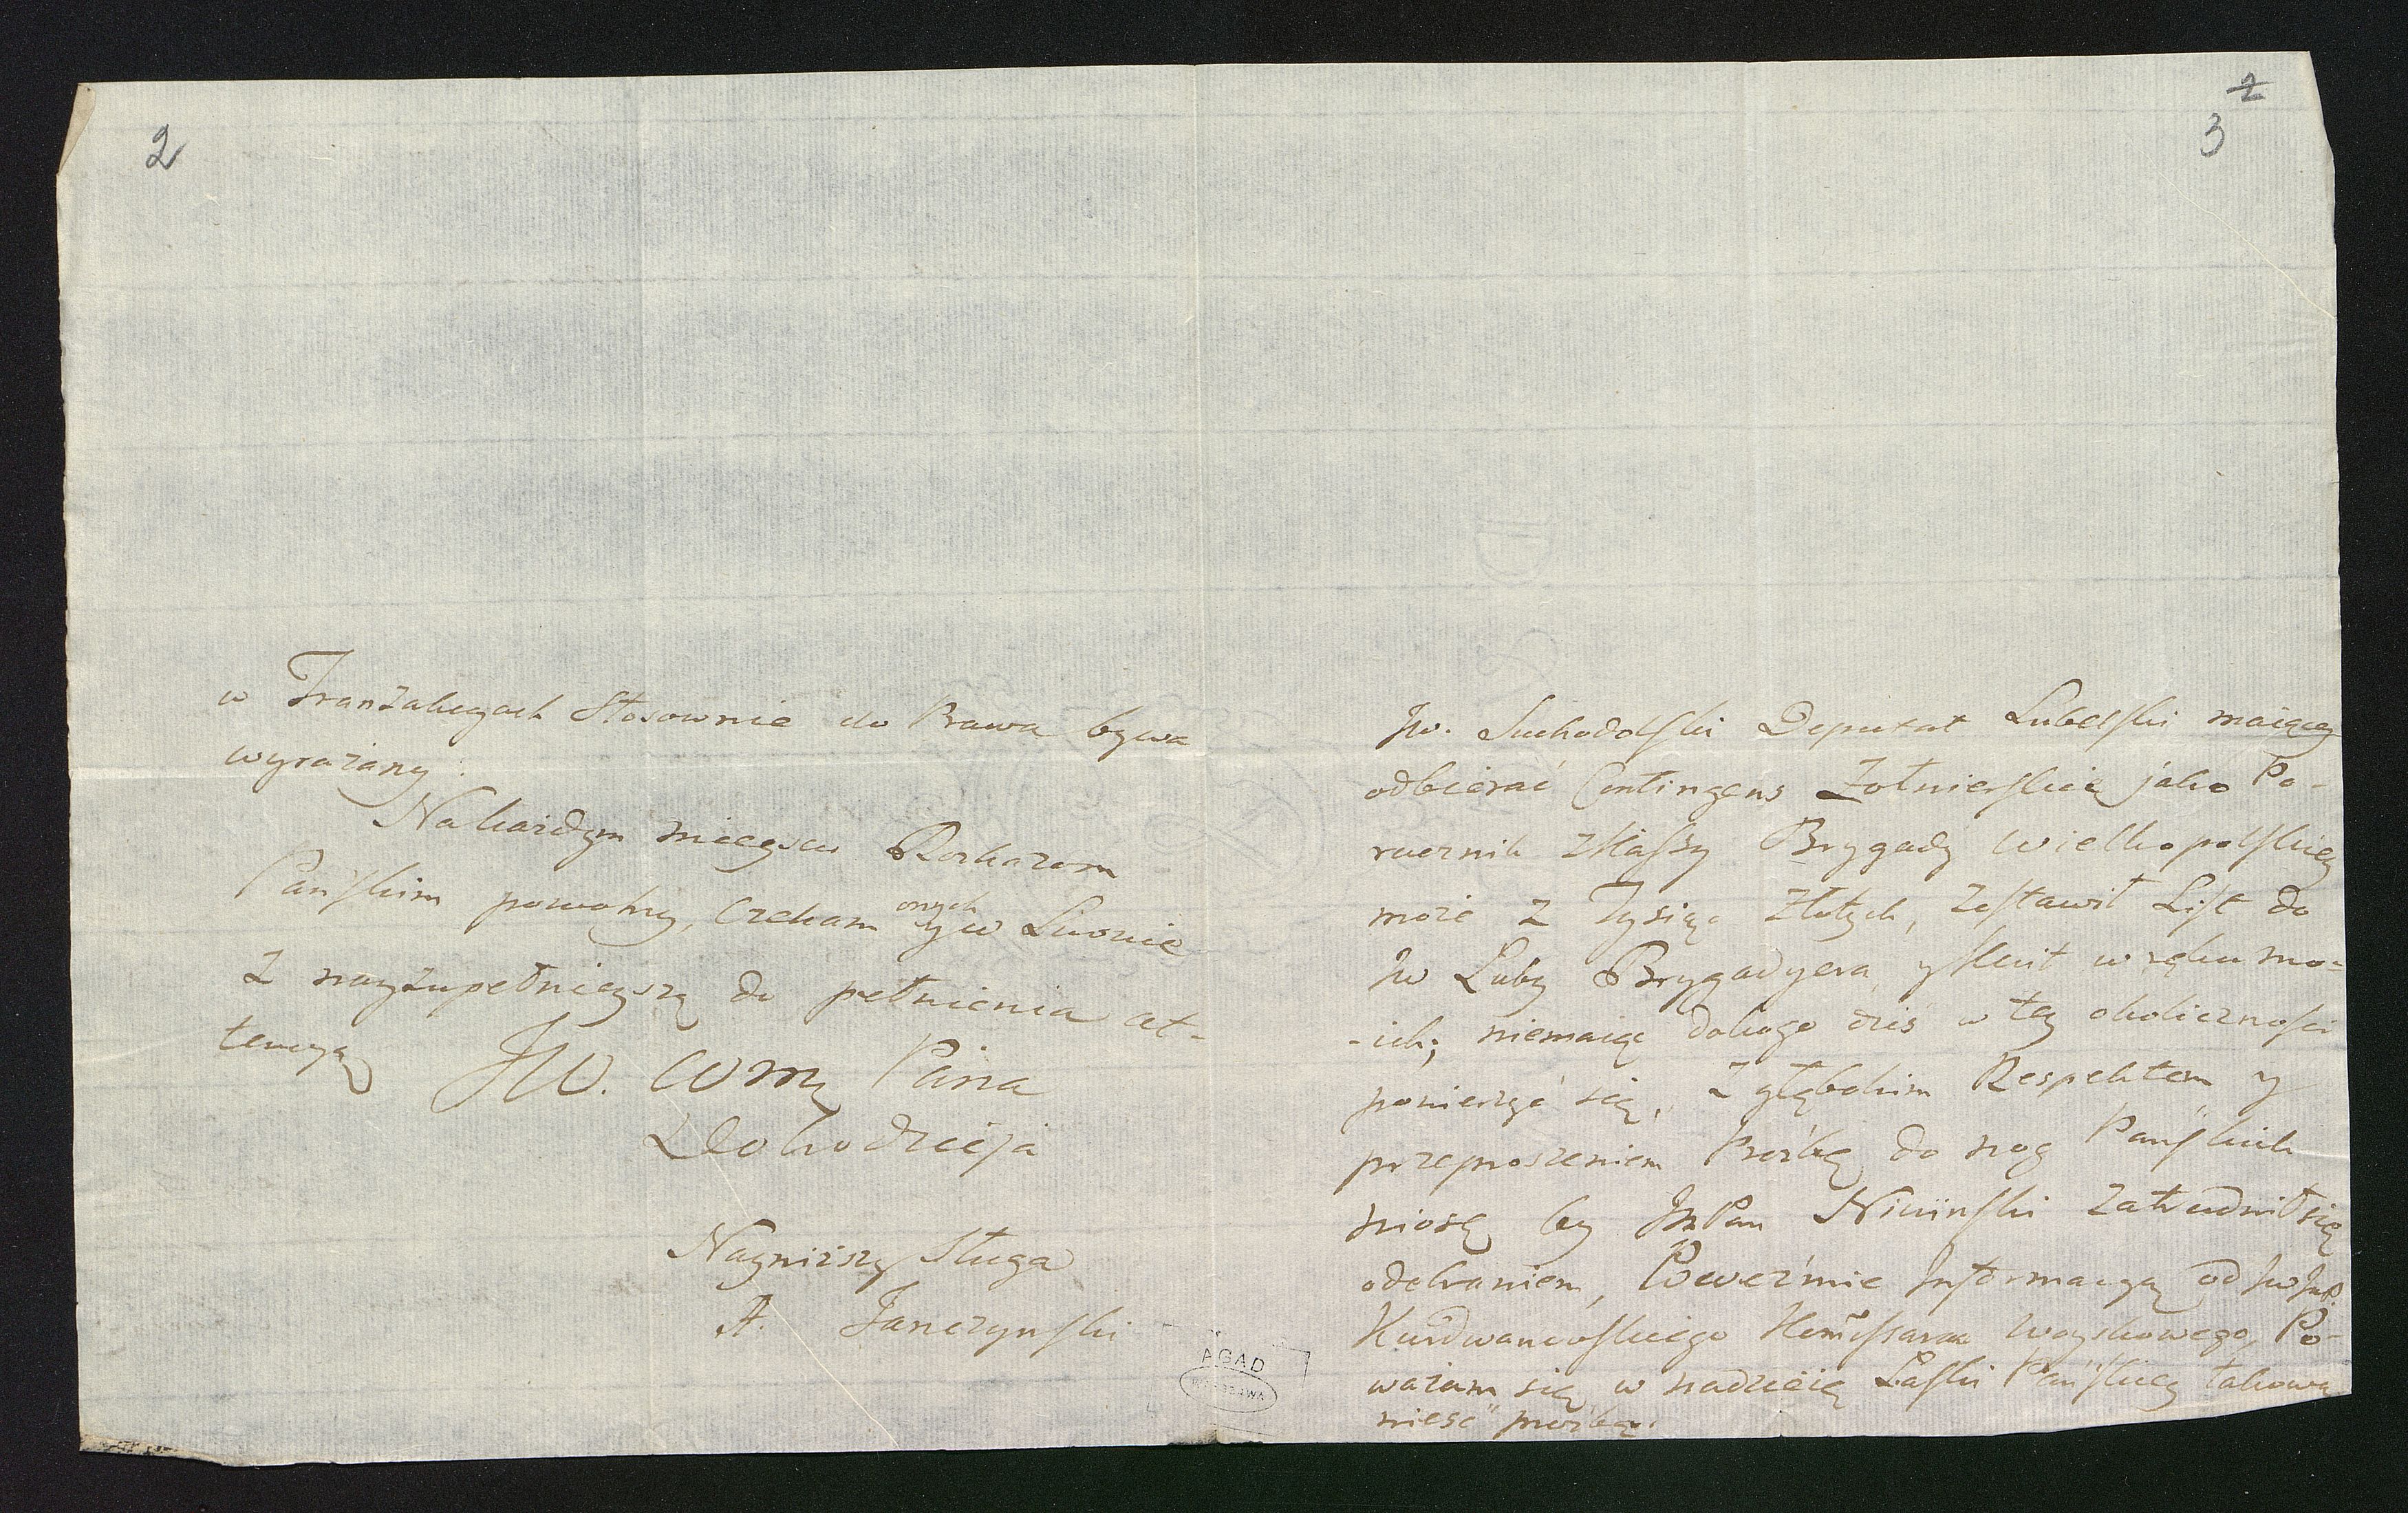 2
w Tranzakcyach Stosownie do Prawa bywa
wyrażany.
Nakażdym mieyscu Rozkazom
Pańskim powolny, czekam onych y w Lwowie
z nayzupełnieyszą do pełnienia at-
tencyą JW. WMę Pana
Dobrodzieja
Nayniższy Sługa
A. Janczynski
2
3
Jw. Suchodolski Deputat Lubelski maiący
odbierać Contingens Zołnierskie jako Po-
rucznik z Kassy Brygady Wielkopolskiey
może z Tysiąc Złotych, zostawił List do
Jw Luby Brygadyera, y Kwit w ręku mo=
-ich; niemaiąc dokogo dziś w tey okoliczności
powierzyć się, z głębokim Respektem y
przeproszeniem Prożbę do nog Pańskich
niosę by JmPan Niwinski zatrudnił się
odebraniem, Poweźmie Informacyą od Jw JmP.
Kurdwanowskiego Kommissarza Woyskowego, Po-
ważam się w nadzieię Łaski Pańskiey takową
nieść prożbę.
AGAD
WARSZAWA